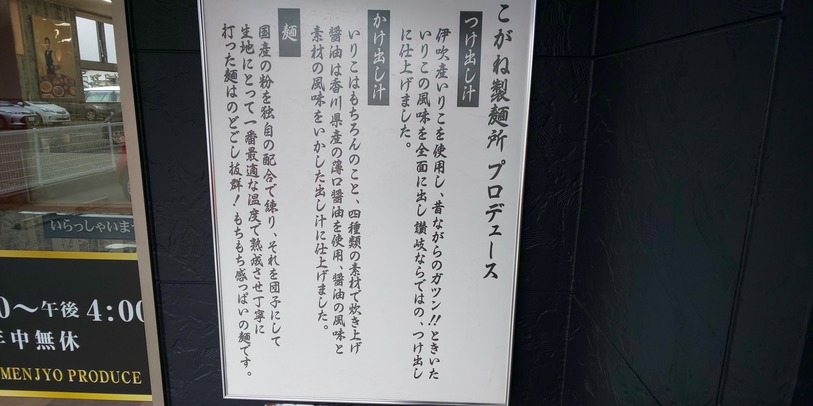 こがね製麺所 プロデュース
つけ出し汁
伊吹産いりこを使用し、昔ながらのガツン!!ときいた
いりこの風味を全面に出し讃岐ならではの、つけ出し
に仕上げました。
かけ出し汁
いりこはもちろんのこと、四種類の素材で炊き上げ
醤油は香川県産の薄口醤油を使用、醤油の風味と
素材の風味をいかした出し汁に仕上げました。
麺
国産の粉を独自の配合で練り、それを団子にして
生地にとって一番最適な温度で熟成させ丁寧に
打った麺はのどごし抜群!もちもち感っぱいの麺です。
いらっしゃいま
0〜午後 4:00
年中無休
MENJYO PRODUCE